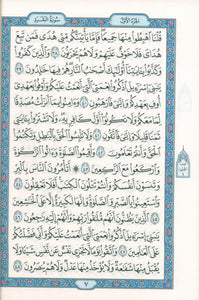 الجزء الأول سورة البقرة
قلنا اهبطوا منها جميعا فإما يأتينكم مني هدى فمن تبع
هداي فلا خوف عليهم ولا هم يحزنون ٣٨ والذين كفروا
وكذبوا بآياتنا أولئك أصحاب النار هم فيها خالدون ٣٩
يا بني إسرائيل اذكروا نعمتي التي أنعمت عليكم وأوفوا بعهدي
أوف بعهدكم وإياي فارهبون ٤٠ وآمنوا بما أنزلت مصدقا
لما معكم ولا تكونوا أول كافر به ولا تشتروا بآياتي
ثمنا قليلا وإياي فاتقون ٤١ ولا تلبسوا الحق بالباطل وتكتموا
الحق وأنتم تعلمون ٤٢ وأقيموا الصلاة وآتوا الزكاة
واركعوا مع الراكعين ٤٣ أتأمرون الناس بالبر
وتنسون أنفسكم وأنتم تتلون الكتاب أفلا تعقلون ٤٤
واستعينوا بالصبر والصلاة وإنها لكبيرة إلا على الخاشعين ٤٥
الذين يظنون أنهم ملاقوا ربهم وأنهم إليه راجعون ٤٦
يا بني إسرائيل اذكروا نعمتي التي أنعمت عليكم وأني فضلتكم
على العالمين ٤٧ واتقوا يوما لا تجزي نفس عن نفس شيئا ولا
يقبل منها شفاعة ولا يؤخذ منها عدل ولا هم ينصرون ٤٨
٧